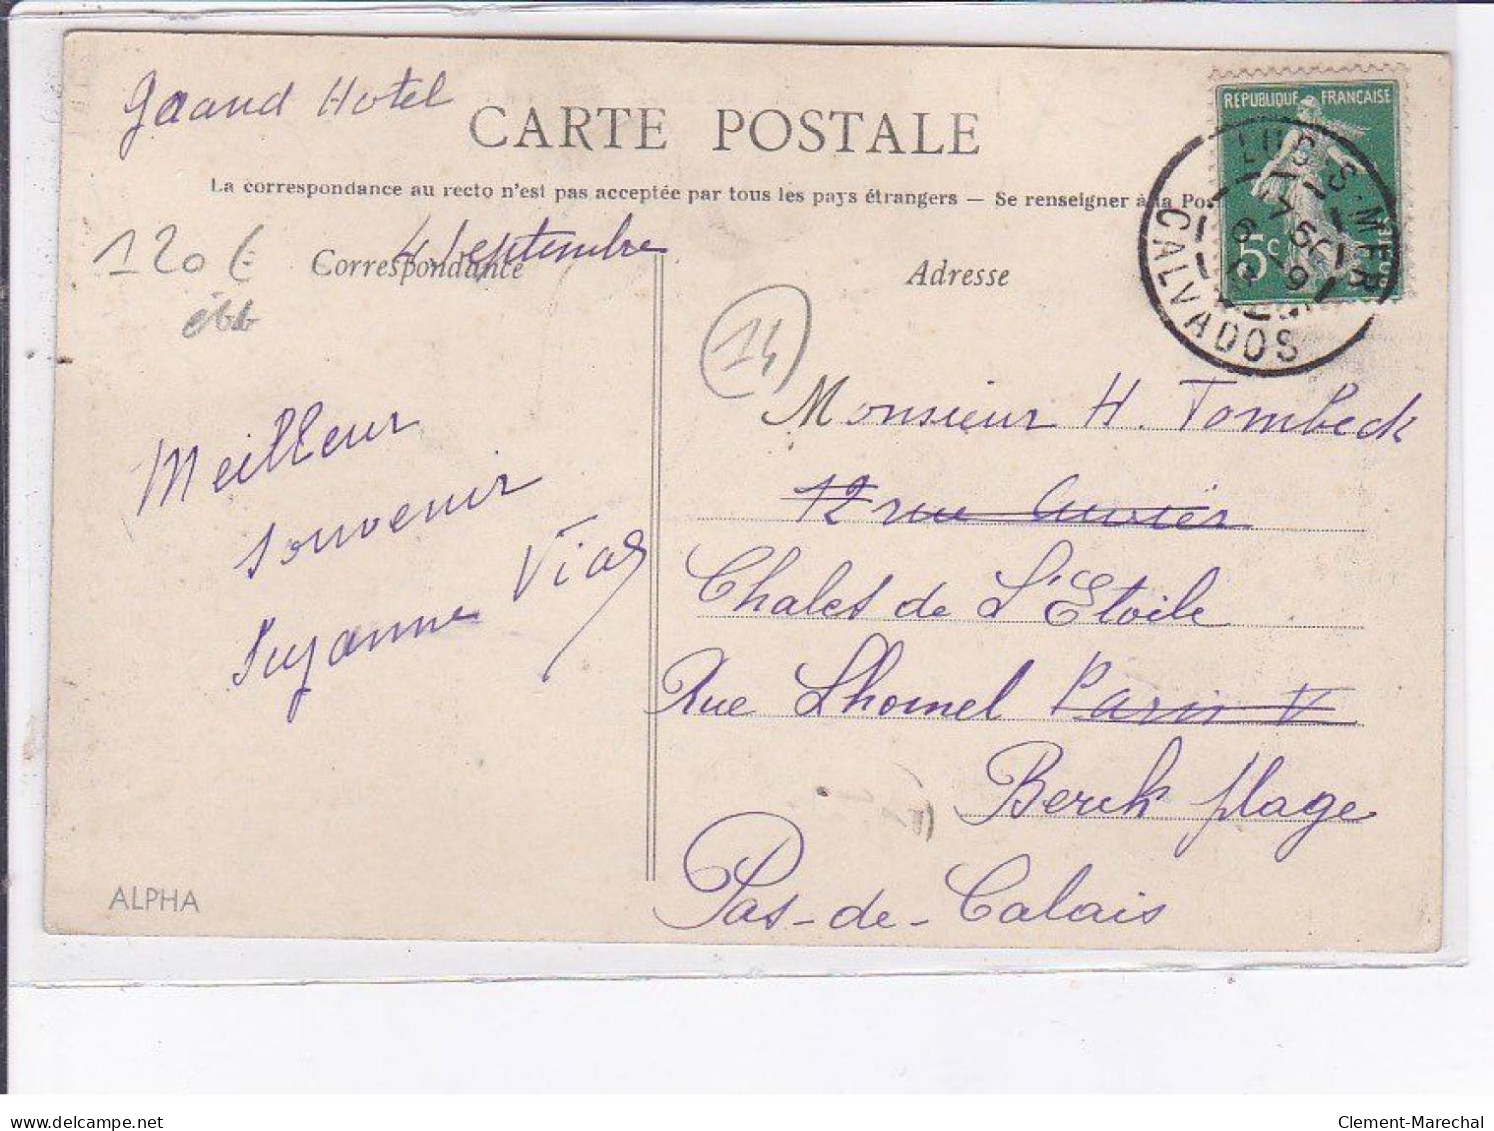 Grand Hotel
CARTE POSTALE
La correspondance au recto n'est pas acceptée par tous les pays étrangers — Se renseigner à la Pos
REPUBLIQUE FRANÇAISE
5c
LUC-S-MER
CALVADOS
120 €
Correspondance
4 Septembre
Adresse
14
Meilleur
souvenir
Suzanne Vial
Monsieur H. Tombeck
12 rue Cuvier
Chalet de L'Etoile
Rue Lhomel Paris V
Berck plage
Pas-de-Calais
ALPHA
delcampe.net
Clement-Marechal